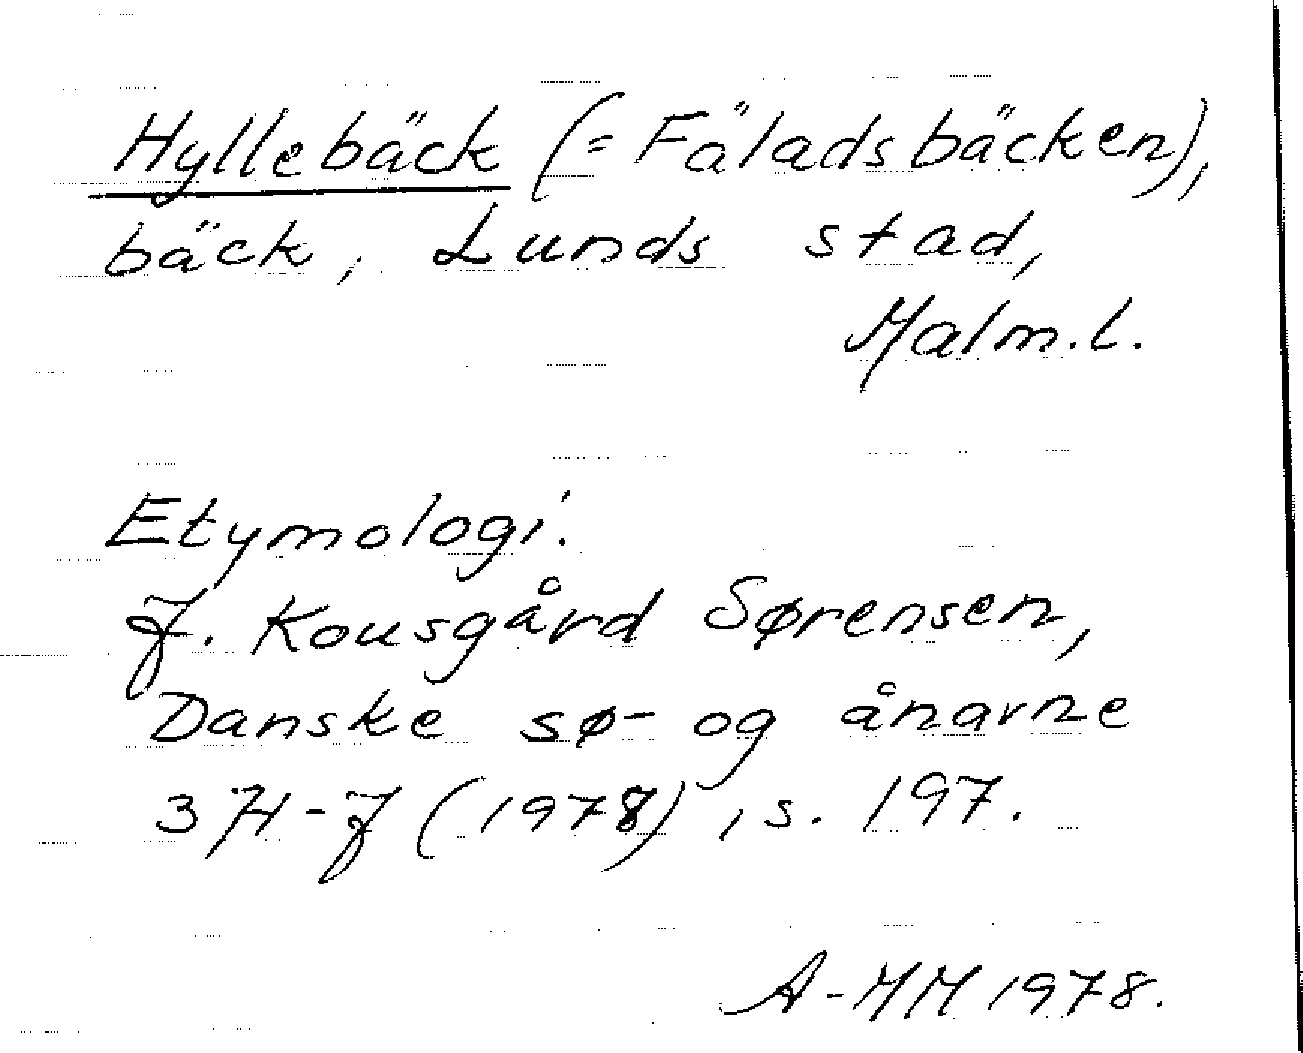 Hyllebäck (= Fäladsbäcken),
bäck, Lunds stad,
Malm.l.
Etymologi:
J. Kousgård Sørensen,
Danske sø- og ånavne
3 H-J (1978), s. 197.
A-MM 1978.